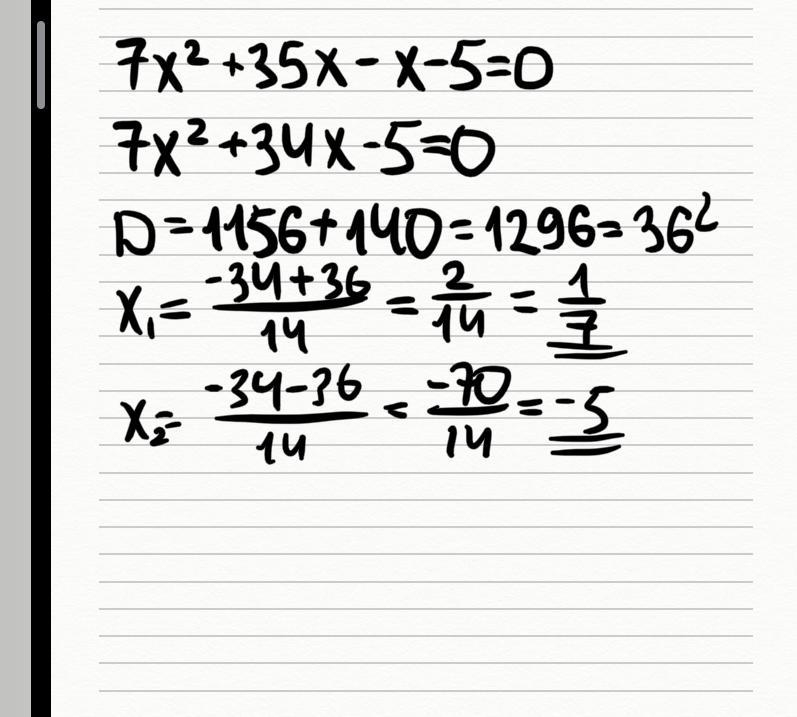 7x² + 35x - x - 5 = 0
7x² + 34x - 5 = 0
D = 1156 + 140 = 1296 = 36²
x₁ = (-34 + 36)/14 = 2/14 = 1/7
x₂ = (-34 - 36)/14 = -70/14 = -5